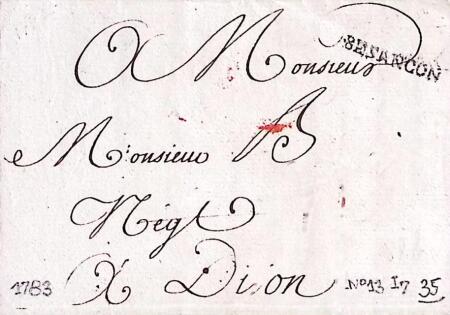 BESANCON
A Monsieur
Monsieur B
Négt
À Dijon
1783 N°13 17 35